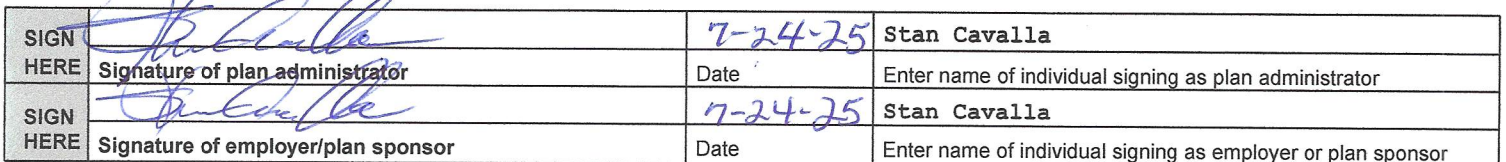 SIGN HERE
7-24-25 Stan Cavalla
Signature of plan administrator Date Enter name of individual signing as plan administrator
SIGN HERE
7-24-25 Stan Cavalla
Signature of employer/plan sponsor Date Enter name of individual signing as employer or plan sponsor